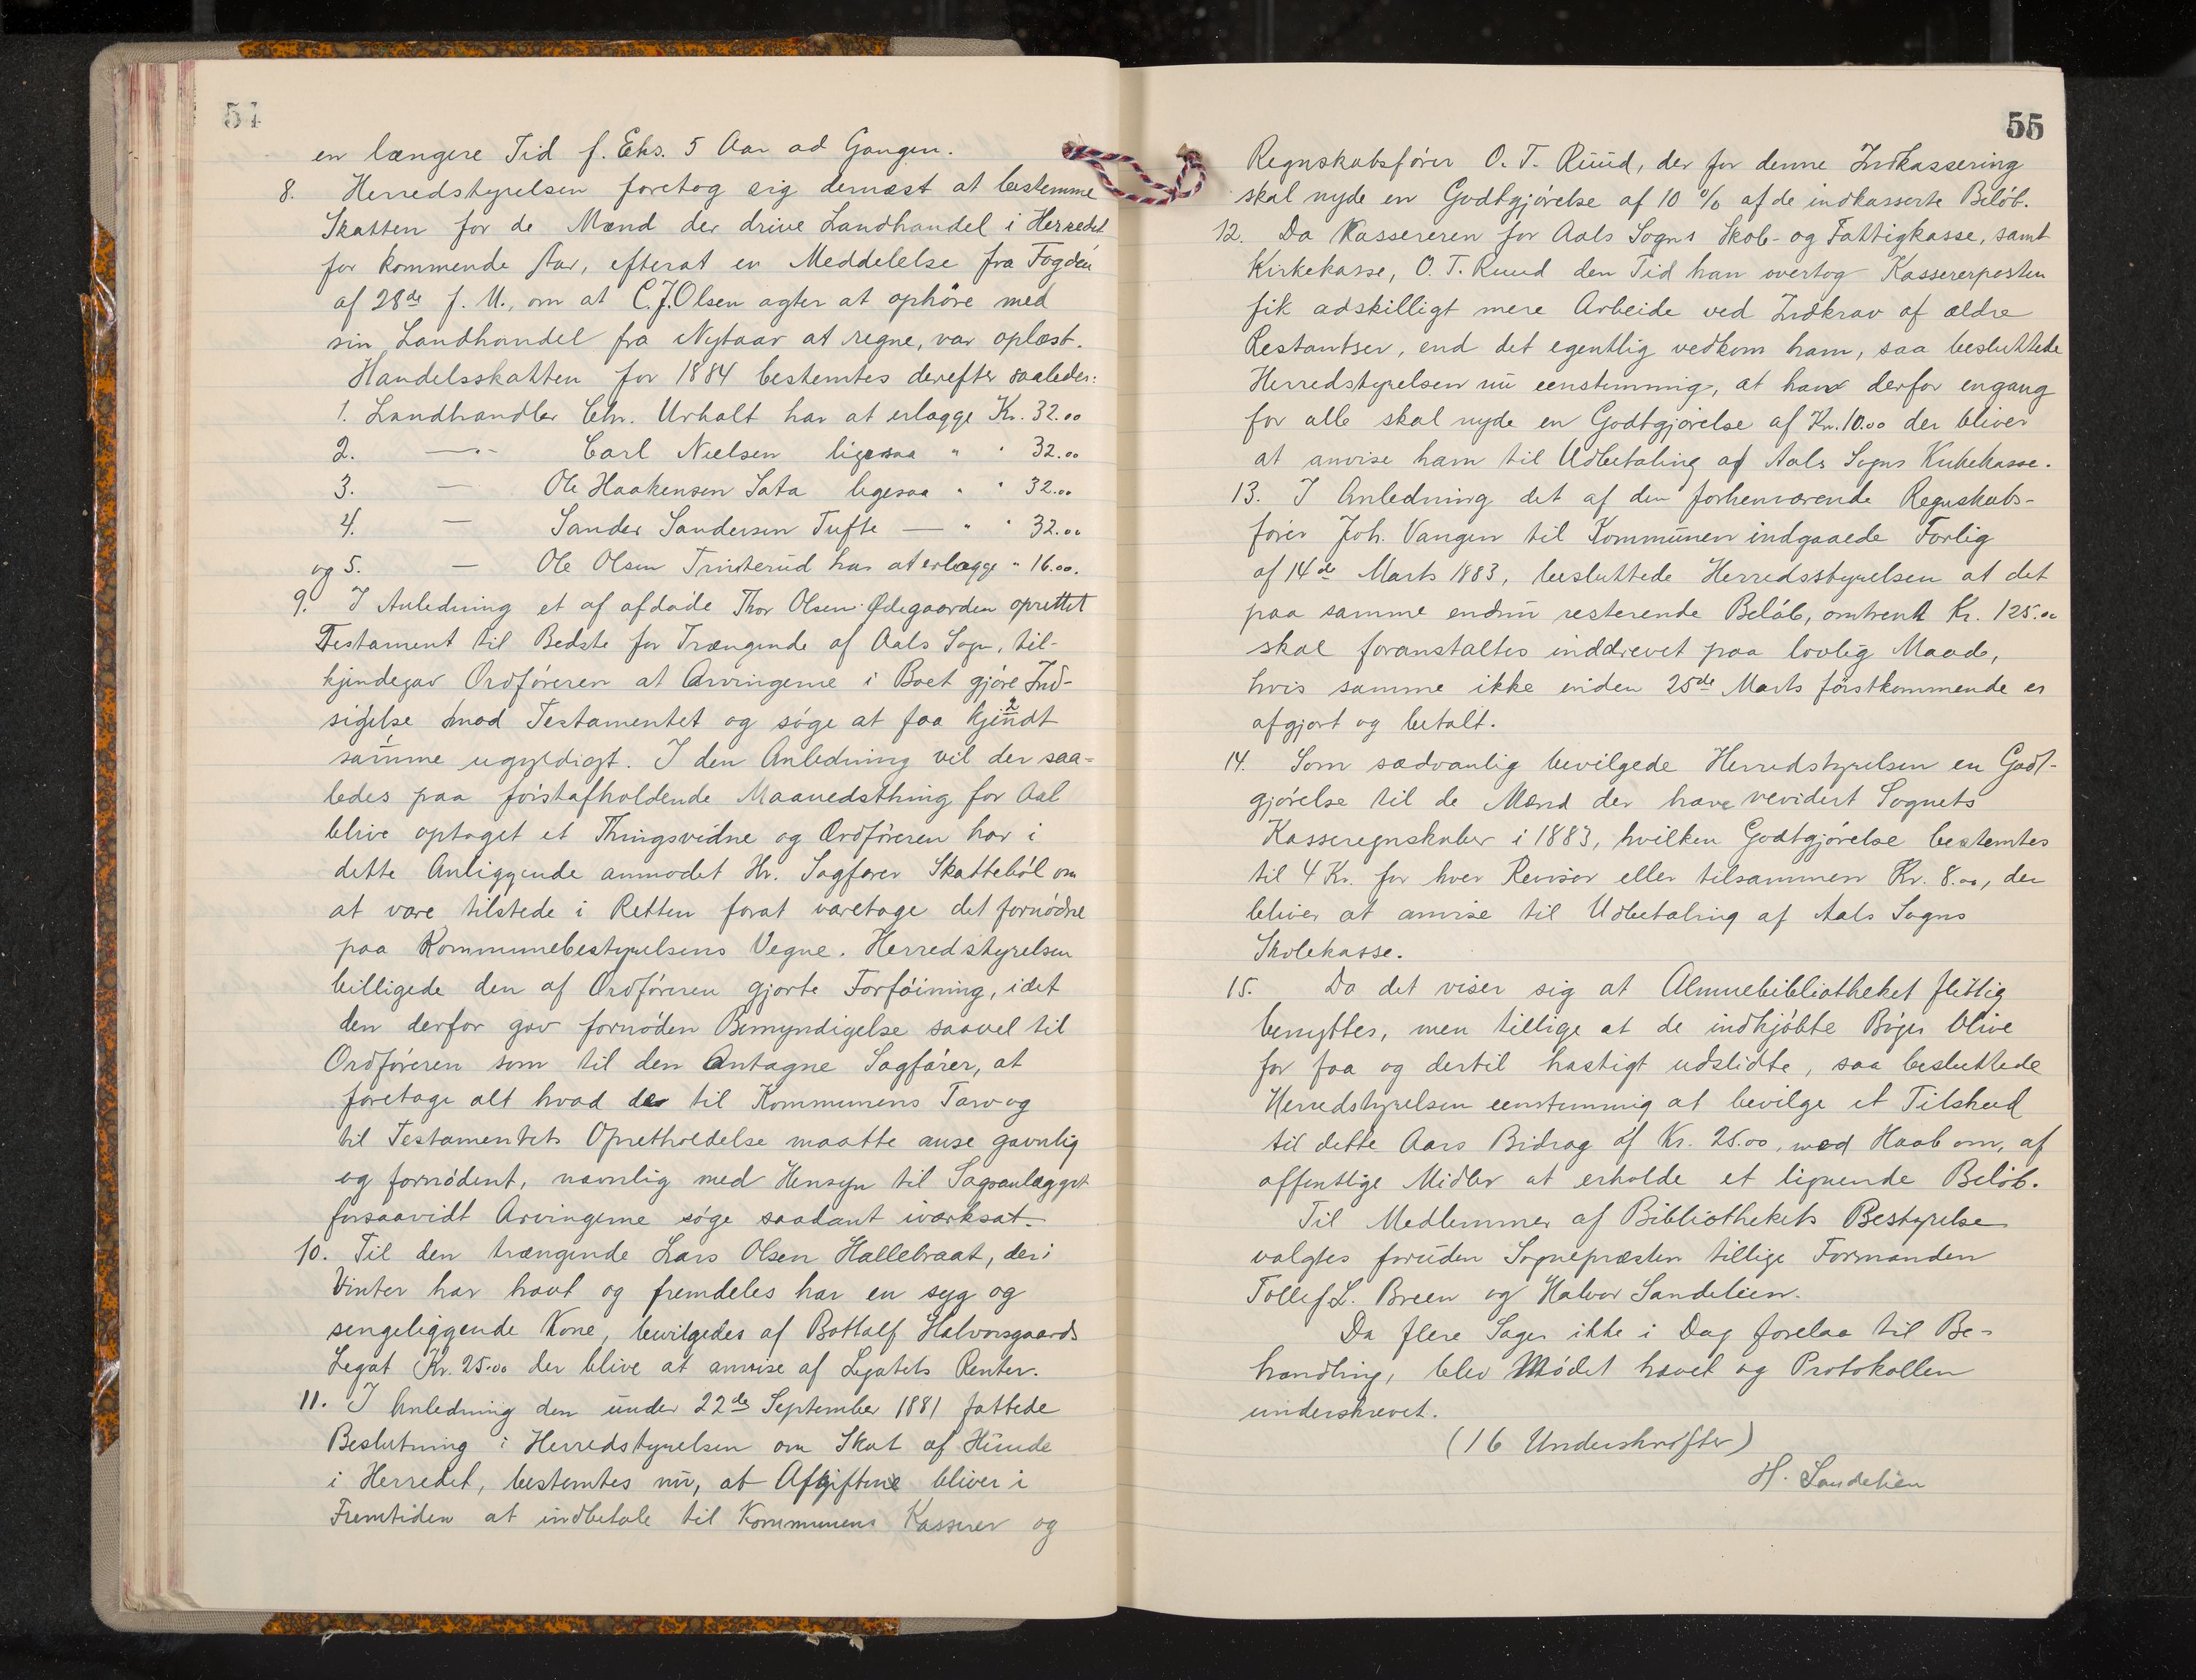 54
en længere Tid f. Eks. 5 Aar ad Gangen.
8. Herredstyrelsen foretog sig dernæst at bestemme
Skatten for de Mænd der drive Landhandel i Herredet
for kommende Aar, efterat en Meddelelse fra Fogden
af 28de f. M., om at C.J. Olsen agter at ophøre med
sin Landhandel fra Nytaar at regne, var oplæst.
Handelsskatten for 1884 bestemtes derefter saaledes:
1. Landhandler Chr. Urhalt har at erlægge Kr. 32.00
2. —"— Carl Nielsen ligesaa " " 32.00
3. — Ole Haakensen Sata ligesaa " " 32.00
4. — Sander Sandersen Tufte — " " 32.00
og 5. — Ole Olsen Trinterud har at erlægge " 16.00.
9. I Anledning et af afdøde Thor Olsen Ødegaarden oprettet
Testament til Bedste for Trængende af Aals Sogn, til-
kjendegav Ordføreren at Arvingerne i Boet gjøre Ind-
sigelse mod Testamentet og søge at faa kjendt
samme ugyldigt. I den Anledning vil der saa-
ledes paa førstafholdende Maanedsthing for Aal
blive optaget et Thingsvidne og Ordføreren har i
dette Anliggende anmodet Hr. Sagfører Skattebøl om
at være tilstede i Retten forat varetage det fornødne
paa Kommunebestyrelsens Vegne. Herredstyrelsen
billigede den af Ordføreren gjorte Forføining, idet
den derfor gav fornøden Bemyndigelse saavel til
Ordføreren som til den Antagne Sagfører, at
foretage alt hvad der til Kommunens Tarv og
til Testamentets Opretholdelse maatte anse gavnlig
og fornødent, navnlig med Hensyn til Sagsanlægget
forsaavidt Arvingerne søge saadant iværksat.
10. Til den trængende Lars Olsen Hallebraat, der i
Vinter har havt og fremdeles har en syg og
sengeliggende Kone, bevilgedes af Bottolf Halvorsgaards
Legat Kr. 25.00 der blive at anvise af Legatets Renter.
11. I Anledning den under 22de September 1881 fattede
Beslutning i Herredstyrelsen om Skat af Hunde
i Herredet, bestemtes nu, at Afgiftene bliver i
Fremtiden at indbetale til Kommunens Kasserer og
55
Regnskabsfører O. T. Ruud, der for denne Indkassering
skal nyde en Godtgjørelse af 10 % af de indkasserte Beløb.
12. Da Kassereren for Aals Sogns Skole- og Fattigkasse, samt
Kirkekasse, O. T. Ruud den Tid han overtog Kassererposten
fik adskilligt mere Arbeide ved Indkrav af ældre
Restantser, end det egentlig vedkom ham, saa besluttede
Herredstyrelsen nu eenstemmig, at han derfor engang
for alle skal nyde en Godtgjørelse af Kr. 10.00 der bliver
at anvise ham til Udbetaling af Aals Sogns Kirkekasse.
13. I Anledning det af den forhenværende Regnskabs-
fører Joh. Vangen til Kommunen indgaaede Forlig
af 14de Marts 1883, besluttede Herredsstyrelsen at det
paa samme endnu resterende Beløb, omtrent Kr. 125.00
skal foranstaltes inddrevet paa lovlig Maade,
hvis samme ikke inden 25de Marts førstkommende er
afgjort og betalt.
14. Som sædvanlig bevilgede Herredstyrelsen en Godt-
gjørelse til de Mænd der have revidert Sognets
Kasseregnskaber i 1883, hvilken Godtgjørelse bestemtes
til 4 Kr. for hver Revisor eller tilsammen Kr. 8.00, der
bliver at anvise til Udbetaling af Aals Sogns
Skolekasse.
15. Da det viser sig at Almuebibliotheket flittig
benyttes, men tillige at de indkjøbte Bøger blive
for faa og dertil hastigt udslidte, saa besluttede
Herredstyrelsen eenstemmig at bevilge et Tilskud
til dette Aars Bidrag af Kr. 25.00, med Haab om, af
offentlige Midler at erholde et lignende Beløb.
Til Medlemmer af Bibliothekets Bestyrelse
valgtes foruden Sognepræsten tillige Formanden
Tollef L. Breen og Halvor Sandelien.
Da flere Sager ikke i Dag forelaa til Be-
handling, blev Mødet hævet og Protokollen
underskrevet.
(16 Underskrifter)
H. Sandelien